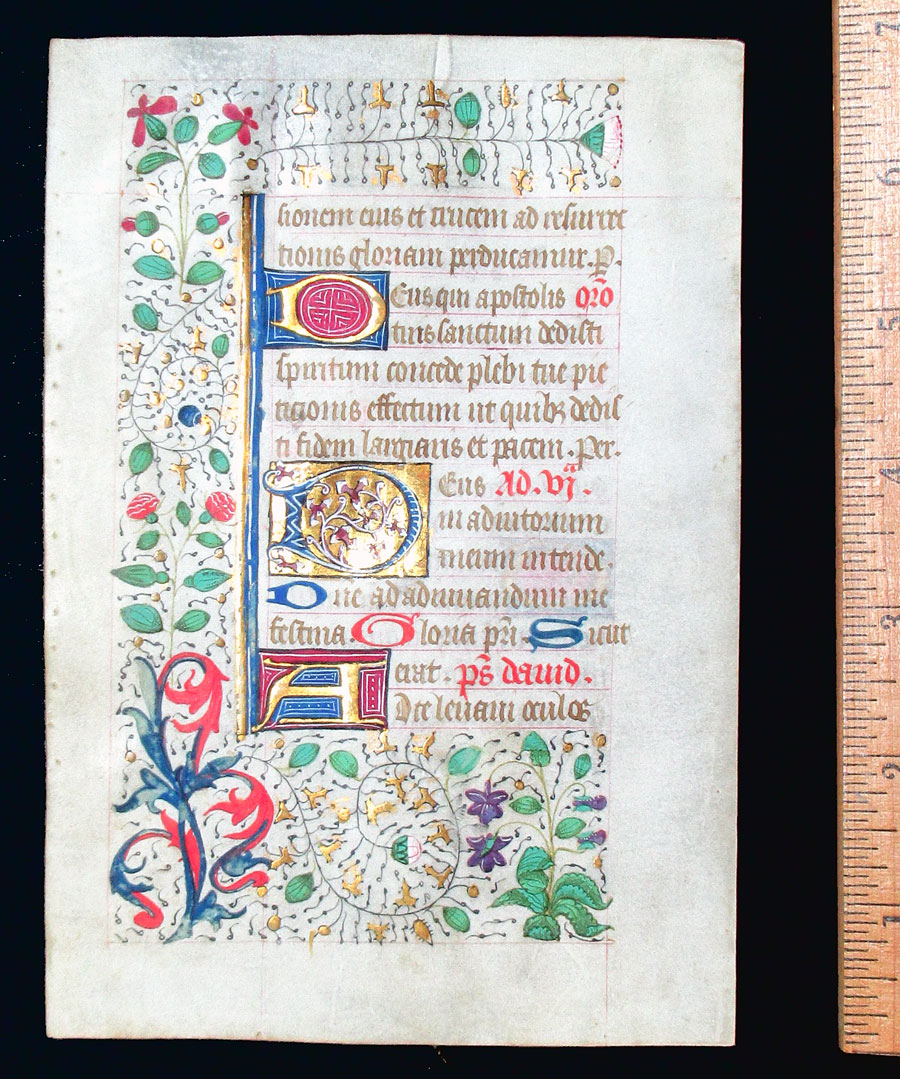 sionem eius et crucem ad resurrec
tionis gloriam perducamur. P.
Eus qui apostolis Orõ
tuis sanctum dedisti
spiritum concede plebi tue pie
ticionis effectum ut quibꝫ dedis
ti fidem largiaris et pacem. Per.
DEus Ad. vjᵃ.
in adiutorium
meum intende.
Dne ad adiuuandum me
festina. Gloria pr̃i. Sicut
erat. pš dauid.
AD te leuaui oculos
7
6
5
4
3
2
1